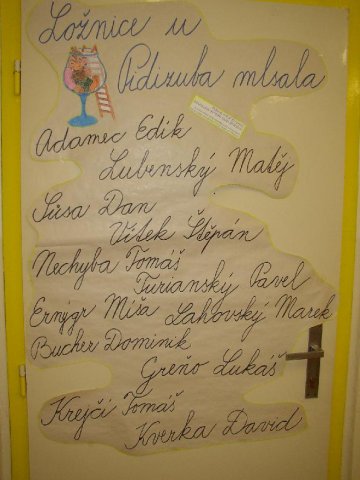 Ložnice u
Pidizuba mlsala
Adamec Edik
Lubenský Matěj
Sůsa Dan
Vítek Štěpán
Nechyba Tomáš
Turianský Pavel
Ernýgr Míša Lahovský Marek
Bucher Dominik
Greňo Lukáš
Krejčí Tomáš
Kverka David